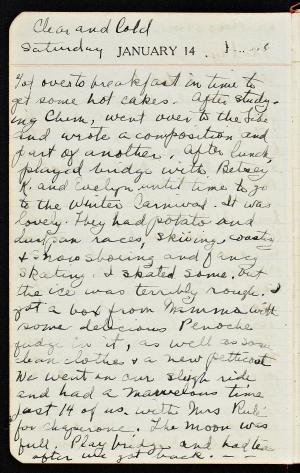 Clear and Cold
Saturday JANUARY 14
Got over to breakfast in time to
get some hot cakes. After study-
ing Chem, went over to the Libe
and wrote a composition and
part of another. After lunch,
played bridge with Betsey
K. and Evelyn until time to go
to the Winter Carnival. It was
lovely. They had potato and
dustpan races, skiving, coasting
& snowshoeing and fancy
skating. I skated some, but
the ice was terribly rough. I
got a box from Mimma with
some delicious Penoche
fudge in it, as well as some
clean clothes & a new petticoat
We went on our sleigh ride
and had a marvelous time
just 14 of us. with Mrs
for chaperone. The moon was
full. Play bridge and had tea
after we got back. —